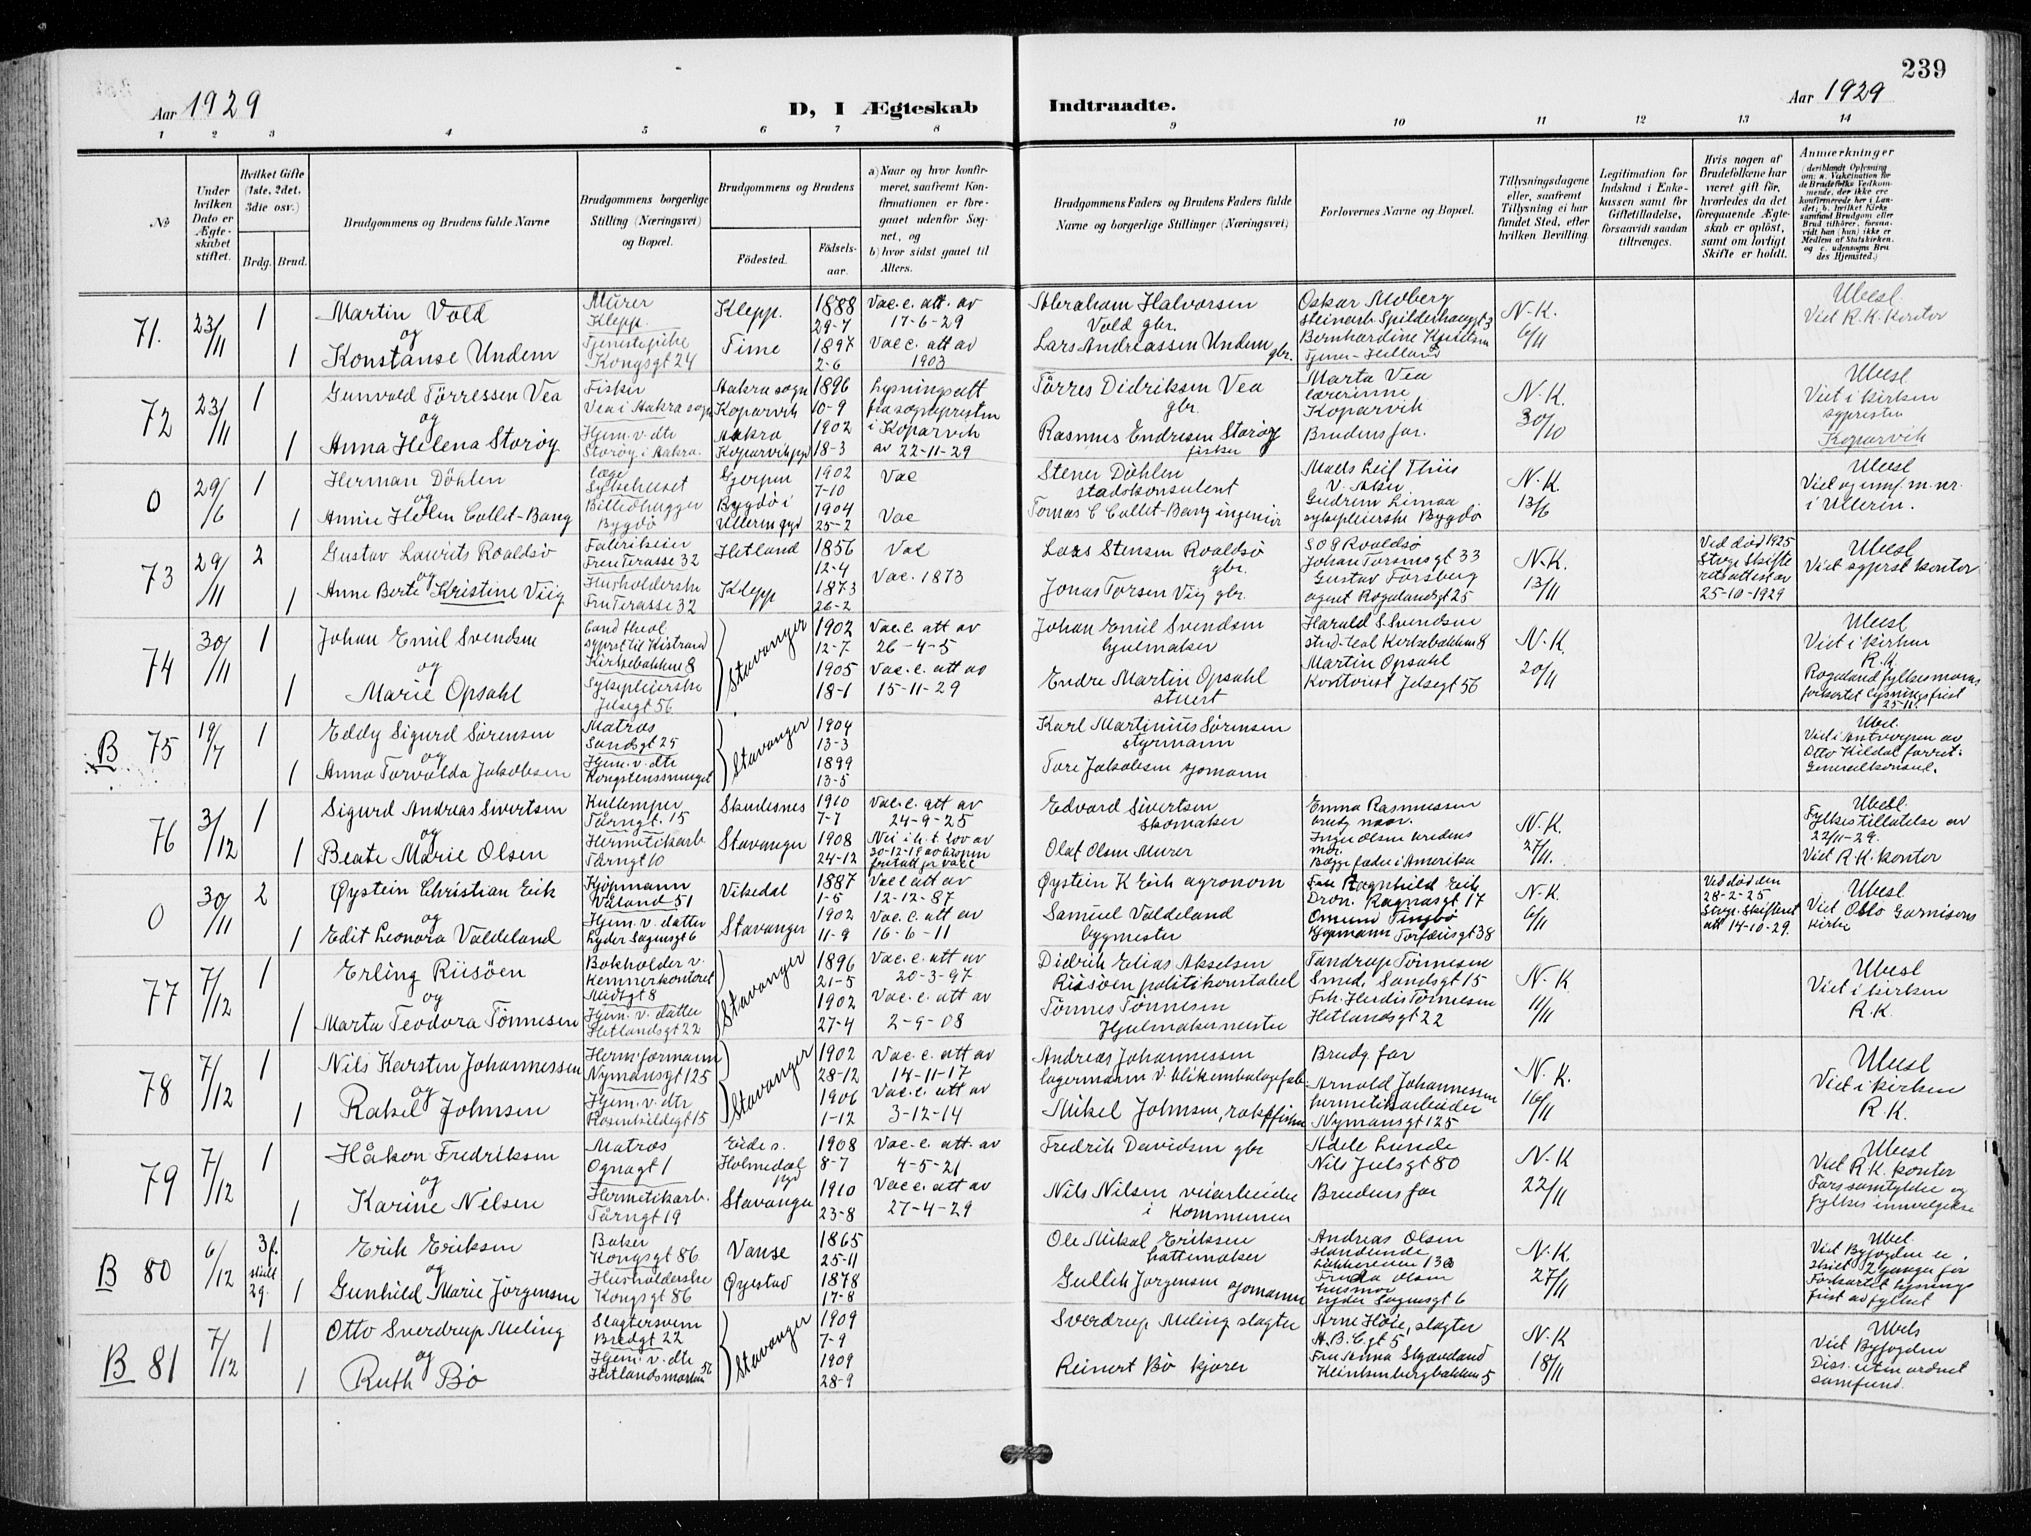 239
Aar 1929
D, I Ægteskab Indtraadte.
Aar 1929
1 2 3 4 5 6 7 8 9 10 11 12 13 14
№
Under hvilken Dato er Ægteskabet stiftet.
Hvilket Gifte (1ste, 2det, 3die osv.)
Brdg. Brud.
Brudgommens og Brudens fulde Navne
Brudgommens borgerlige Stilling (Næringsvei) og Bopæl.
Brudgommens og Brudens
Fødested.
Fødselsaar.
a) Naar og hvor konfirmeret, saafremt Konfirmationen er foregaaet udenfor Sognet, og
b) hvor sidst gaaet til Alters.
Brudgommens Faders og Brudens Faders fulde Navne og borgerlige Stillinger (Næringsvei)
Forlovernes Navne og Bopæl.
Tillysningsdagene eller, saafremt Tillysning ei har fundet Sted, efter hvilken Bevilling.
Legitimation for Indskud i Enkekassen samt for Giftetilladelse, forsaavidt saadan tiltrænges.
Hvis nogen af Brudefolkene har været gift før, hvorledes da det foregaaende Ægteskab er opløst, samt om lovligt Skifte er holdt.
Anmærkninger (deriblandt Oplysning om: a. Vakcination for de Brudefolks Vedkommende, der ikke ere konfirmerede her i Landet; b. hvilket Kirkesamfund Brudgom eller Brud tilhører, forsaavidt han (hun) ikke er Medlem af Statskirken, og c. udensogns Brudes Hjemsted.)
71. 23/11 1 Martin Vold Murer Klepp. Klepp. 1888 29-7 Vac. e. att. av 17-6-29 Abraham Halvorsen Vold gbr. Oskar Moberg N.K. 6/11 Ubesl. Viet R.K. kontor
og
1 Konstanse Undem Tjenestepike Kongsgt 24 Time 1897 2-6 Vac e. att av 1903 Lars Andreassen Undem gbr.
72 23/11 1 Gunvald Tørressen Vea Fisker Vea i Aakra sogn Aakra sogn Koparvik 1896 10-9 Lysningsatt fra sogneprestn i Koparvik av 22-11-29 Tørres Didriksen Vea gbr. Marta Vea lærerinne Koparvik N.K. 30/10 Ubesl Viet i kirken sgpresten Koparvik
og
1 Anna Helena Storøy Hjem. v. dtr Storøy i Aakra. Aakra Koparvik pgd 1902 18-3 Rasmus Endresen Storøy fisker Brudens far.
0 29/6 1 Herman Döhlen læge Sykehuset Gjerpen 1902 7-10 Vac Stener Döhlen stadskonsulent N.K. 13/6 Ubesl i Ullern.
og
1 Annie Helen Collet-Bang Billedhugger Bygdø Bygdø i Ullern pgd 1904 25-2 Vac Tomas C Collet-Bang ingeniør sykepleierske Bygdø
73 29/11 2 Gustav Laurits Roaldsø Fabrikeier Frue Terasse 32 Hetland 1856 12-4 Vac Lars Stensen Roaldsø gbr. S O G Roaldsø Johan Torsonsgt 33 N.K. 13/11 Ved død 1925 Stvgr Skifte rets attest av 25-10-1929 Ubesl Viet sgprst kontor
og
1 Anne Berte Kristine Viig Husholderske Fru Terasse 32 Klepp 1873 26-2 Vac. 1873 Jonas Torsen Viig gbr. Gustav Forsberg agent Rogalandsgt 25
74 30/11 1 Johan Emil Svendsen Cand theol sgprst til Kistrand Kirkebakken 8 Stavanger 1902 12-7 Vac. e. att av 26-4-5 Johan Emil Svendsen hjulmaker Harald S Svendsen stud. teol Kirkebakken 8 N.K. 20/11 Ubesl Viet i kirken R.K. Rogaland fylkesmanns forkortet lysningsfrist 25-11.
og
1 Marie Opsahl Sykepleierske Jelsegt 56 1905 18-1 Vac. e. att av 15-11-29 Endre Martin Opsahl stuert Martin Opsahl Jelsegt 56
B 75 19/7 1 Eddy Sigurd Sørensen Matros Sandsgt 25 Stavanger 1904 13-3 Karl Martinius Sørensen styrmann Ubesl. Viet i Antverpen av Otto Kildal forret. Generalkonsul.
og
1 Anna Torvalda Jakobsen Hjem. v. dtr Kongstenssmuget 1899 13-5 Tore Jakobsen sjomann
76 3/12 1 Sigurd Andreas Sivertsen Tårngt. 15 Skudesnes 1910 7-7 Vac. e. att av 24-9-25 Edvard Sivertsen skomaker Emma Rasmussen N.K. 27/11. Ubesl. Fylkestillatelse av 22/11-29. Viet R.K. kontor
og
1 Beate Marie Olsen Hermetikarb Tårngt 10 Stavanger 1908 24-12 Olaf Olsen Murer Begge fædre i Amerika
0 30/11 2 Øystein Christian Eik Kjøpmann Våland 51 Vikedal 1887 1-5 Vac e att av 12-12-87 Øystein K Eik agronom Fru Ragnhild Eik Dron. Ragnasgt 17 N.K. 6/11 Ved død den 28-2-25 Stvgr. Skifteret att 14-10-29. Ubesl Viet Oslo Garnisons kirke
og
1 Edit Leonora Valdeland Hjem. v. datter Lyder Sagensgt 6 Stavanger 1902 11-9 Vac. e. att av 16-6-11 Samuel Valdeland bygmester Omund Tingbø Kjøpmann Torfæusgt 38
77 7/12 1 Erling Riisöen Bokholder v. Kemnerkontoret Midtgt 8 Stavanger 1896 21-5 Vac. e. att av 20-3-97 Didrik Elias Akselsen Riisöen politikonstabel Tandrup Tønnesen Smed. Sandsgt 15 N.K 11/11 Ubesl Viet i kirken R.K.
og
1 Marta Teodora Tönnesen Hjem. v. datter Hetlandsgt 22 1902 27-4 Vac. e. att av 2-9-08 Tönnes Tønnesen Hjulmakermester Frk. Herdis Tönnesen Hetlandsgt 22
78 7/12 1 Nils Karsten Johannessen Herm. formann Nymansgt 125 Stavanger 1902 28-12 Vac. e. att av 14-11-17 Andreas Johannessen lagermann v. blikembalagefabr. Brudg. far N.K. 16/11 Ubesl Viet i kirken R.K.
og
1 Rakel Johnsen Hjem. v. dtr Rosenkildegt 15 1906 1-12 Vac. e. att av 3-12-14 Mikel Johnsen, Arnold Johannessen hermetikarbeider Nymansgt 125
79 7/12 1 Håkon Fredriksen Matros Ognagt 1 Eide s. Holmedal pgd 1908 8-7 Vac. e. att. av 4-5-21 Fredrik Davidsen gbr Adele Lunde Nils Julsgt 80 N.K 22/11 Ubesl Viet R.K. kontor Farssamtykke og fylkes innvilgelse
og
1 Karine Nilsen Hermetikarb. Tårngt 19 Stavanger 1910 23-8 Vac e. att av 27-4-29 Nils Nilsen veiarbeider i Kommunen Brudens far
B 80 6/12 3 f. skilt 29. Erik Eriksen Baker Kongsgt 86 Vanse 1865 25-11 Ole Mikal Eriksen hattemaker Andreas Olsen N.K. 27/11 Ubesl Viet Byfogden e. skilt 2 ganger før Forkortet lysnings frist av fylket
og
1 Gunhild Marie Jørgensen Husholderske Kongsgt 86 Øyestad 1878 17-8 Gullik Jorgensen sjomann Frida Olsen husmor Lyder Sagensgt 6
B 81 7/12 1 Otto Sverdrup Meling Slagtersvenn Bredgt 22 Stavanger 1909 7-9 Sverdrup Meling slagter Arne Høie, slagter H.B.C.gt 5 N.K 18/11 Ubesl Viet Byfogden Diss. uten ordnet samfund.
og
1 Ruth Bø Hjem. v. dtr Hetlandsmarken 56 1909 28-9 Reinert Bø kjører Fru Anna Skjæveland